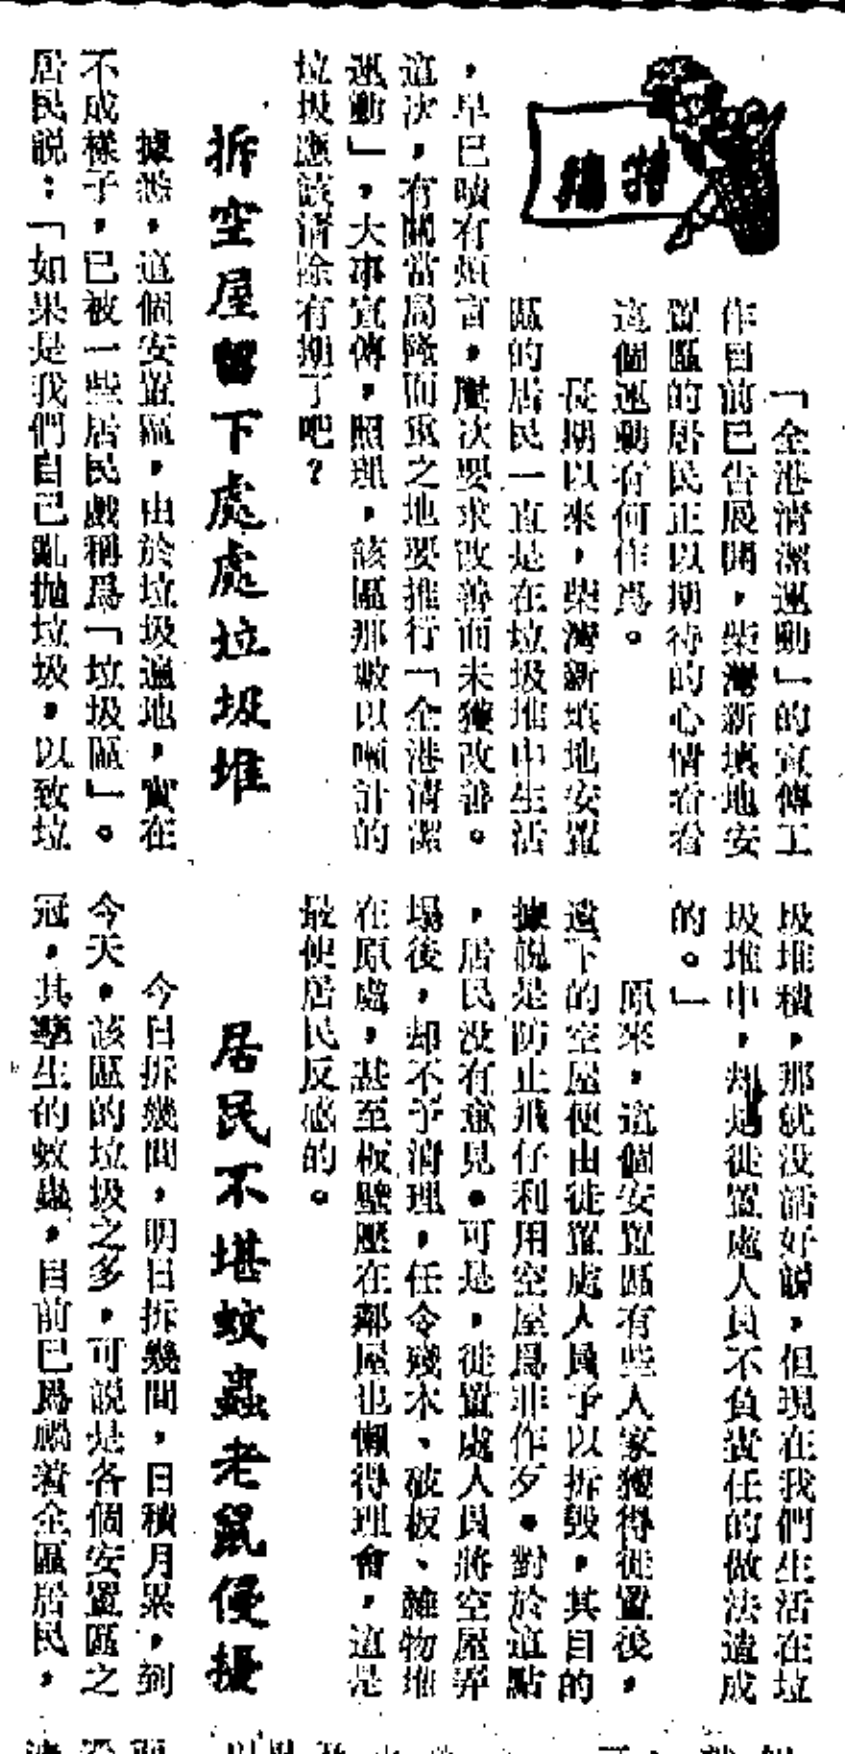 特稿
「全港清潔運動」的宣傳工
作目前已告展開，柴灣新填地安
置區的居民正以期待的心情看看
這個運動有何作爲。
長期以來，柴灣新填地安置
區的居民一直是在垃圾堆中生活
，早已嘖有煩言，屢次要求改善而未獲改善。
這次，有關當局隆而重之地要推行「全港清潔
運動」，大事宣傳，照理，該區那數以噸計的
垃圾應該清除有期了吧？
拆空屋留下處處垃圾堆
據悉，這個安置區，由於垃圾遍地，實在
不成樣子，已被一些居民戲稱爲「垃圾區」。
居民説：「如果是我們自己亂拋垃圾，以致垃
圾堆積，那就没話好説，但現在我們生活在垃
圾堆中，却是徙置處人員不負責任的做法造成
的。」
原來，這個安置區有些人家獲得徙置後，
遺下的空屋便由徙置處人員予以拆毀，其目的
據説是防止飛仔利用空屋爲非作歹。對於這點
，居民没有意見。可是，徙置處人員將空屋弄
塌後，却不予清理，任令殘木、破板、雜物堆
在原處，甚至板壁壓在鄰屋也懶得理會，這是
最使居民反感的。
居民不堪蚊蟲老鼠侵擾
今日拆幾間，明日拆幾間，日積月累，到
今天，該區的垃圾之多，可説是各個安置區之
冠，其孳生的蚊蟲，目前已爲禍着全區居民，